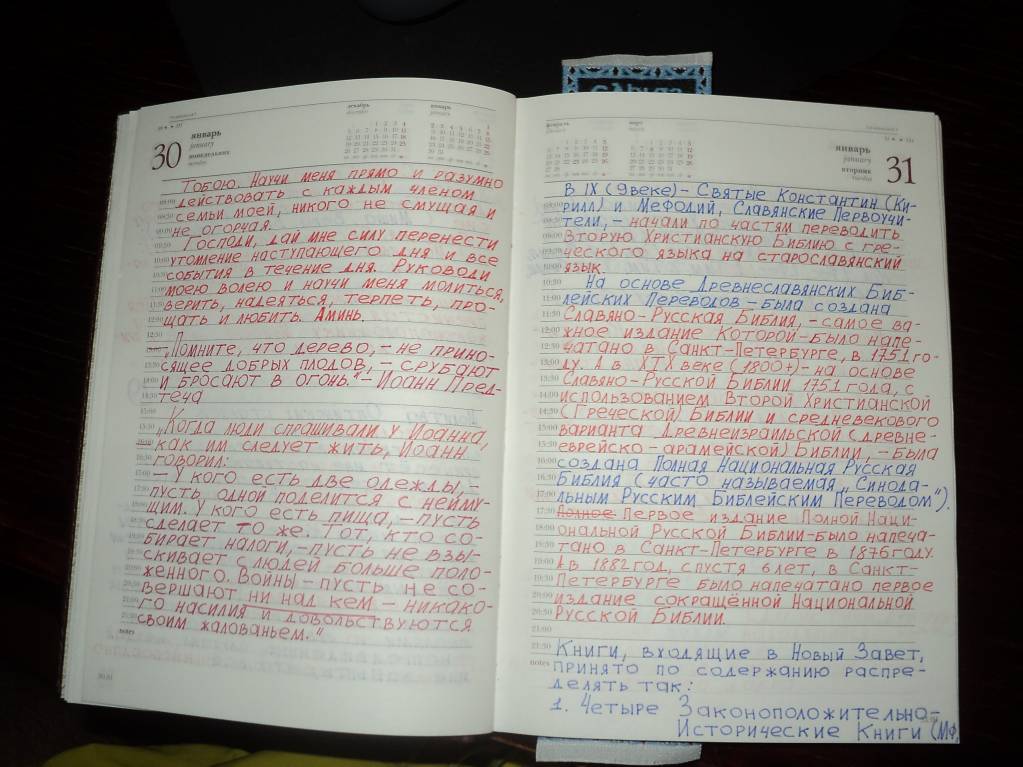 январь
january
30
понедельник
monday
декабрь
январь
Тобою. Научи меня прямо и разумно
действовать с каждым членом
семьи моей, никого не смущая и
не огорчая.
Господи, дай мне силу перенести
утомление наступающего дня и все
события в течение дня. Руководи
моею волею и научи меня молиться,
верить, надеяться, терпеть, про-
щать и любить. Аминь.
„Помните, что дерево, – не прино-
сящее добрых плодов, – срубают
и бросают в огонь." – Иоанн Пред-
теча
„Когда люди спрашивали у Иоанна,
как им следует жить, Иоанн
говорил:
– У кого есть две одежды, –
пусть одной поделится с неиму-
щим. У кого есть пища, – пусть
сделает то же. Тот, кто со-
бирает налоги, – пусть не взы-
скивает с людей больше поло-
женного. Воины – пусть не со-
вершают ни над кем – никако-
го насилия и довольствуются
своим жалованьем."
notes
февраль
март
январь
january
31
вторник
tuesday
В IX (9 веке) – Святые Константин (Ки-
рилл) и Мефодий, Славянские Первоучи-
тели, – начали по частям переводить
Вторую Христианскую Библию с гре-
ческого языка на старославянский
язык.
На основе Древнеславянских Биб-
лейских Переводов – была создана
Славяно-Русская Библия, – самое ва-
жное издание Которой – было напе-
чатано в Санкт-Петербурге, в 1751 го-
ду. А в XIX веке (1800+) – на основе
Славяно-Русской Библии 1751 года, с
использованием Второй Христианской
(Греческой) Библии и средневекового
варианта Древнеизраильской (древне-
еврейско-арамейской) Библии, – была
создана Полная Национальная Русская
Библия (часто называемая „Синода-
льным Русским Библейским Переводом").
Полное Первое издание Полной Наци-
ональной Русской Библии – было напеча-
тано в Санкт-Петербурге в 1876 году.
А в 1882 год, спустя 6 лет, в Санкт-
Петербурге было напечатано первое
издание сокращённой Национальной
Русской Библии.
notes
Книги, входящие в Новый Завет,
принято по содержанию распре-
делять так:
1. Четыре Законоположительно-
Исторические Книги (Мф,